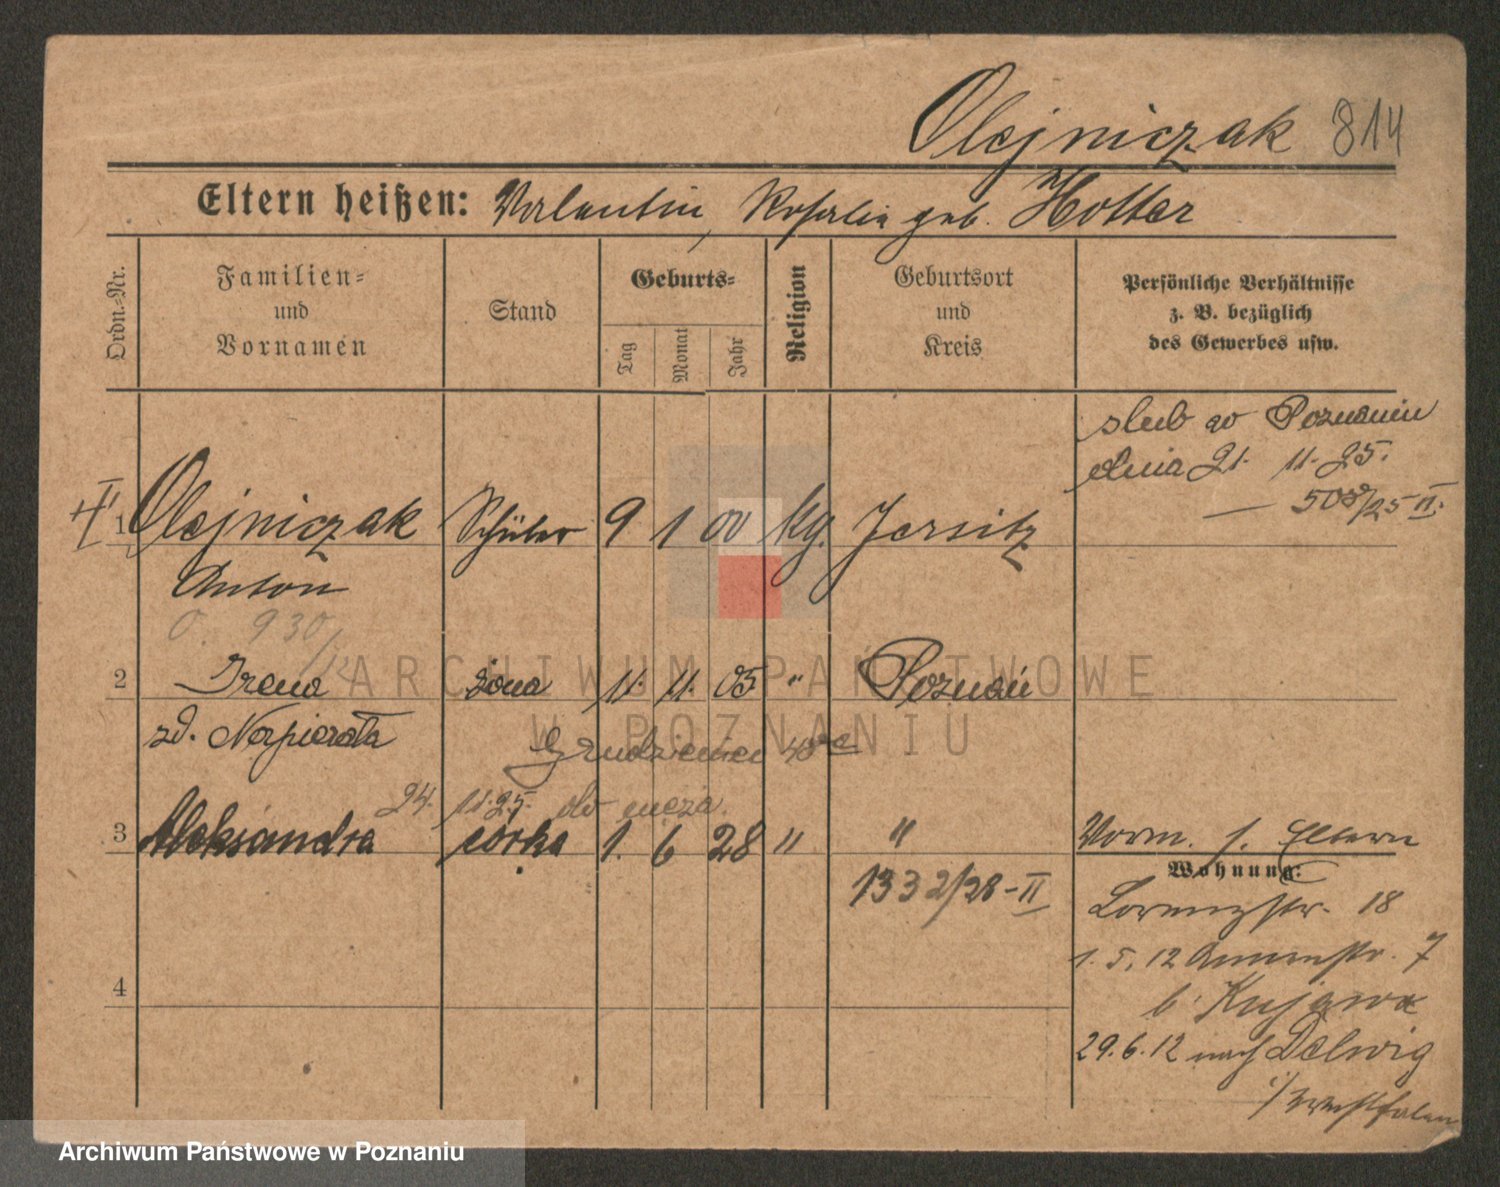 Olejniczak 814
Eltern heißen: Valentin, Rosalie geb. Hotter
Ordn.-Nr.
Familien-
und
Vornamen
Stand
Geburts-
Tag
Monat
Jahr
Religion
Geburtsort
und
Kreis
Persönliche Verhältnisse
z. B. bezüglich
des Gewerbes usw.
ślub w Poznaniu
dnia 21. 11. 25.
— 508/25 II.
II 1 Olejniczak Schüler 9 1 00 kg. Jersitz
Anton
0. 930/
2 Irena żona 11. 11. 05. " Poznań
zd. Nozpierała
Grudzieniec 40
24. 11. 25. do męża.
3 Aleksandra córka 1. 6 28 " "
1332/28-II
Vorm. f. Eltern
Wohnung:
Lorenzstr. 18
1. 5. 12 Annenstr. 7
b. Kujawa
29. 6. 12 nach Delwig
i/Westfalen
4
ARCHIWUM PAŃSTWOWE
W POZNANIU
Archiwum Państwowe w Poznaniu